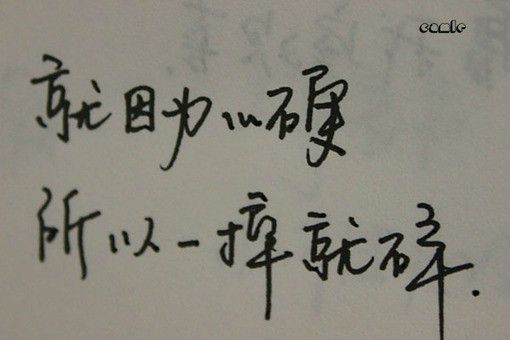 camic
就因为心硬
所以一摔就碎.